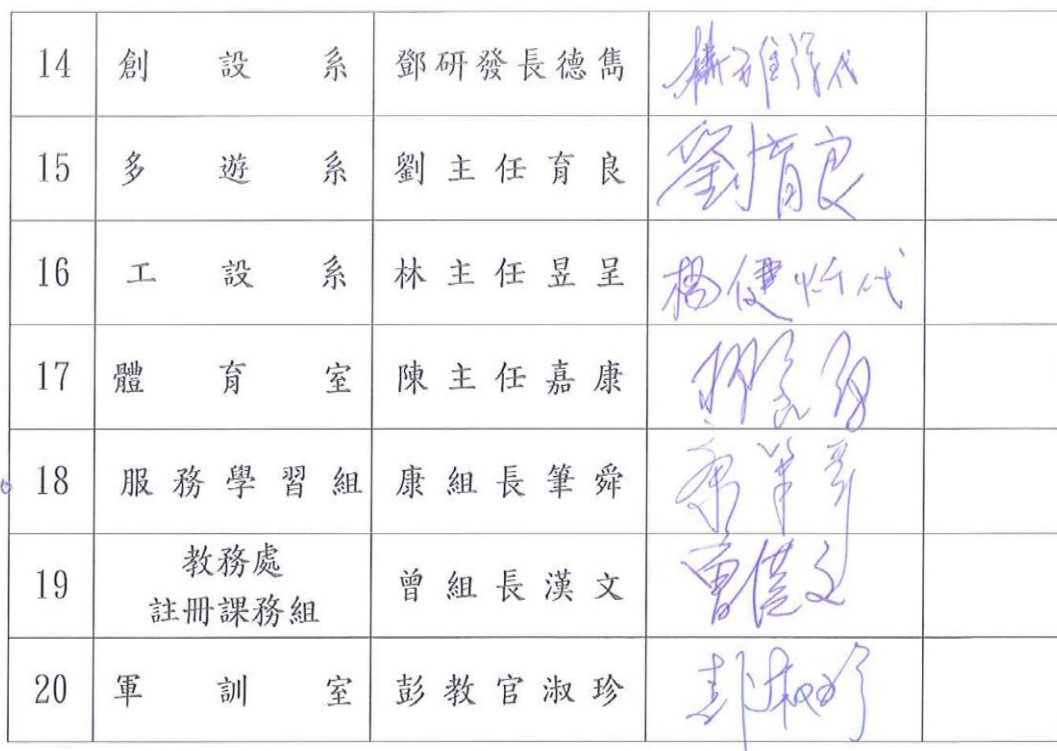 14 創設系 鄧研發長德雋 代
15 多遊系 劉主任育良 劉育良
16 工設系 林主任昱呈 楊健 代
17 體育室 陳主任嘉康
18 服務學習組 康組長筆舜 康筆舜
19 教務處 曾組長漢文 曾漢文
註冊課務組
20 軍訓室 彭教官淑珍 彭淑珍